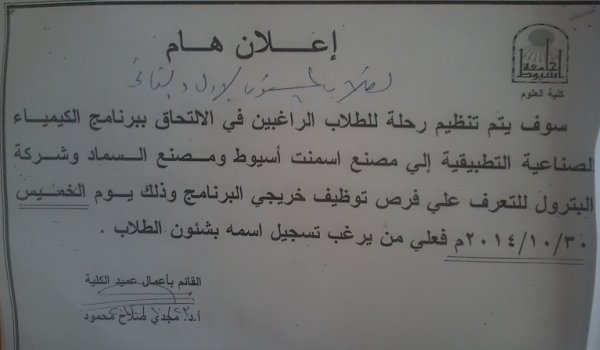 جامعة أسيوط
كلية العلوم
إعلان هام
لطلاب المستوى الأول والثاني
سوف يتم تنظيم رحلة للطلاب الراغبين في الالتحاق ببرنامج الكيمياء
لصناعية التطبيقية إلي مصنع اسمنت أسيوط ومصنع السماد وشركة
البترول للتعرف علي فرص توظيف خريجي البرنامج وذلك يوم الخميس
٢٠١٤/١٠/٣٠م فعلي من يرغب تسجيل اسمه بشئون الطلاب .
القائم بأعمال عميد الكلية
أ.د/ مجدي صلاح محمود